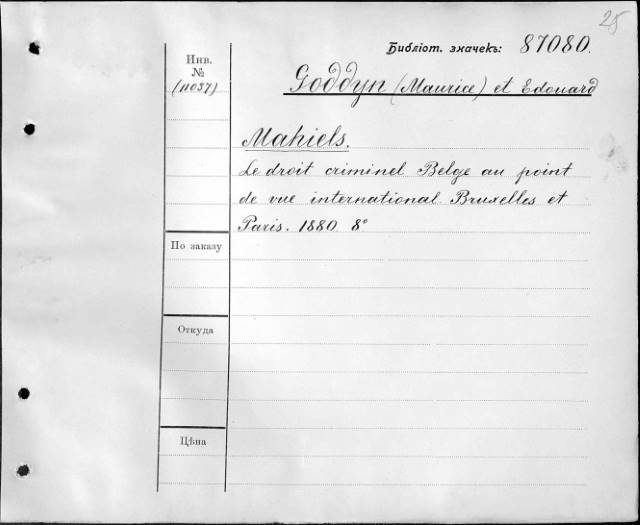 25
Библіот. значекъ: 87080.
Инв.
№
(11037)
Goddyn (Maurice) et Edouard
Mahiels.
Le droit criminel Belge au point
de vue international. Bruxelles et
Paris. 1880. 8°
По заказу
Откуда
Цѣна